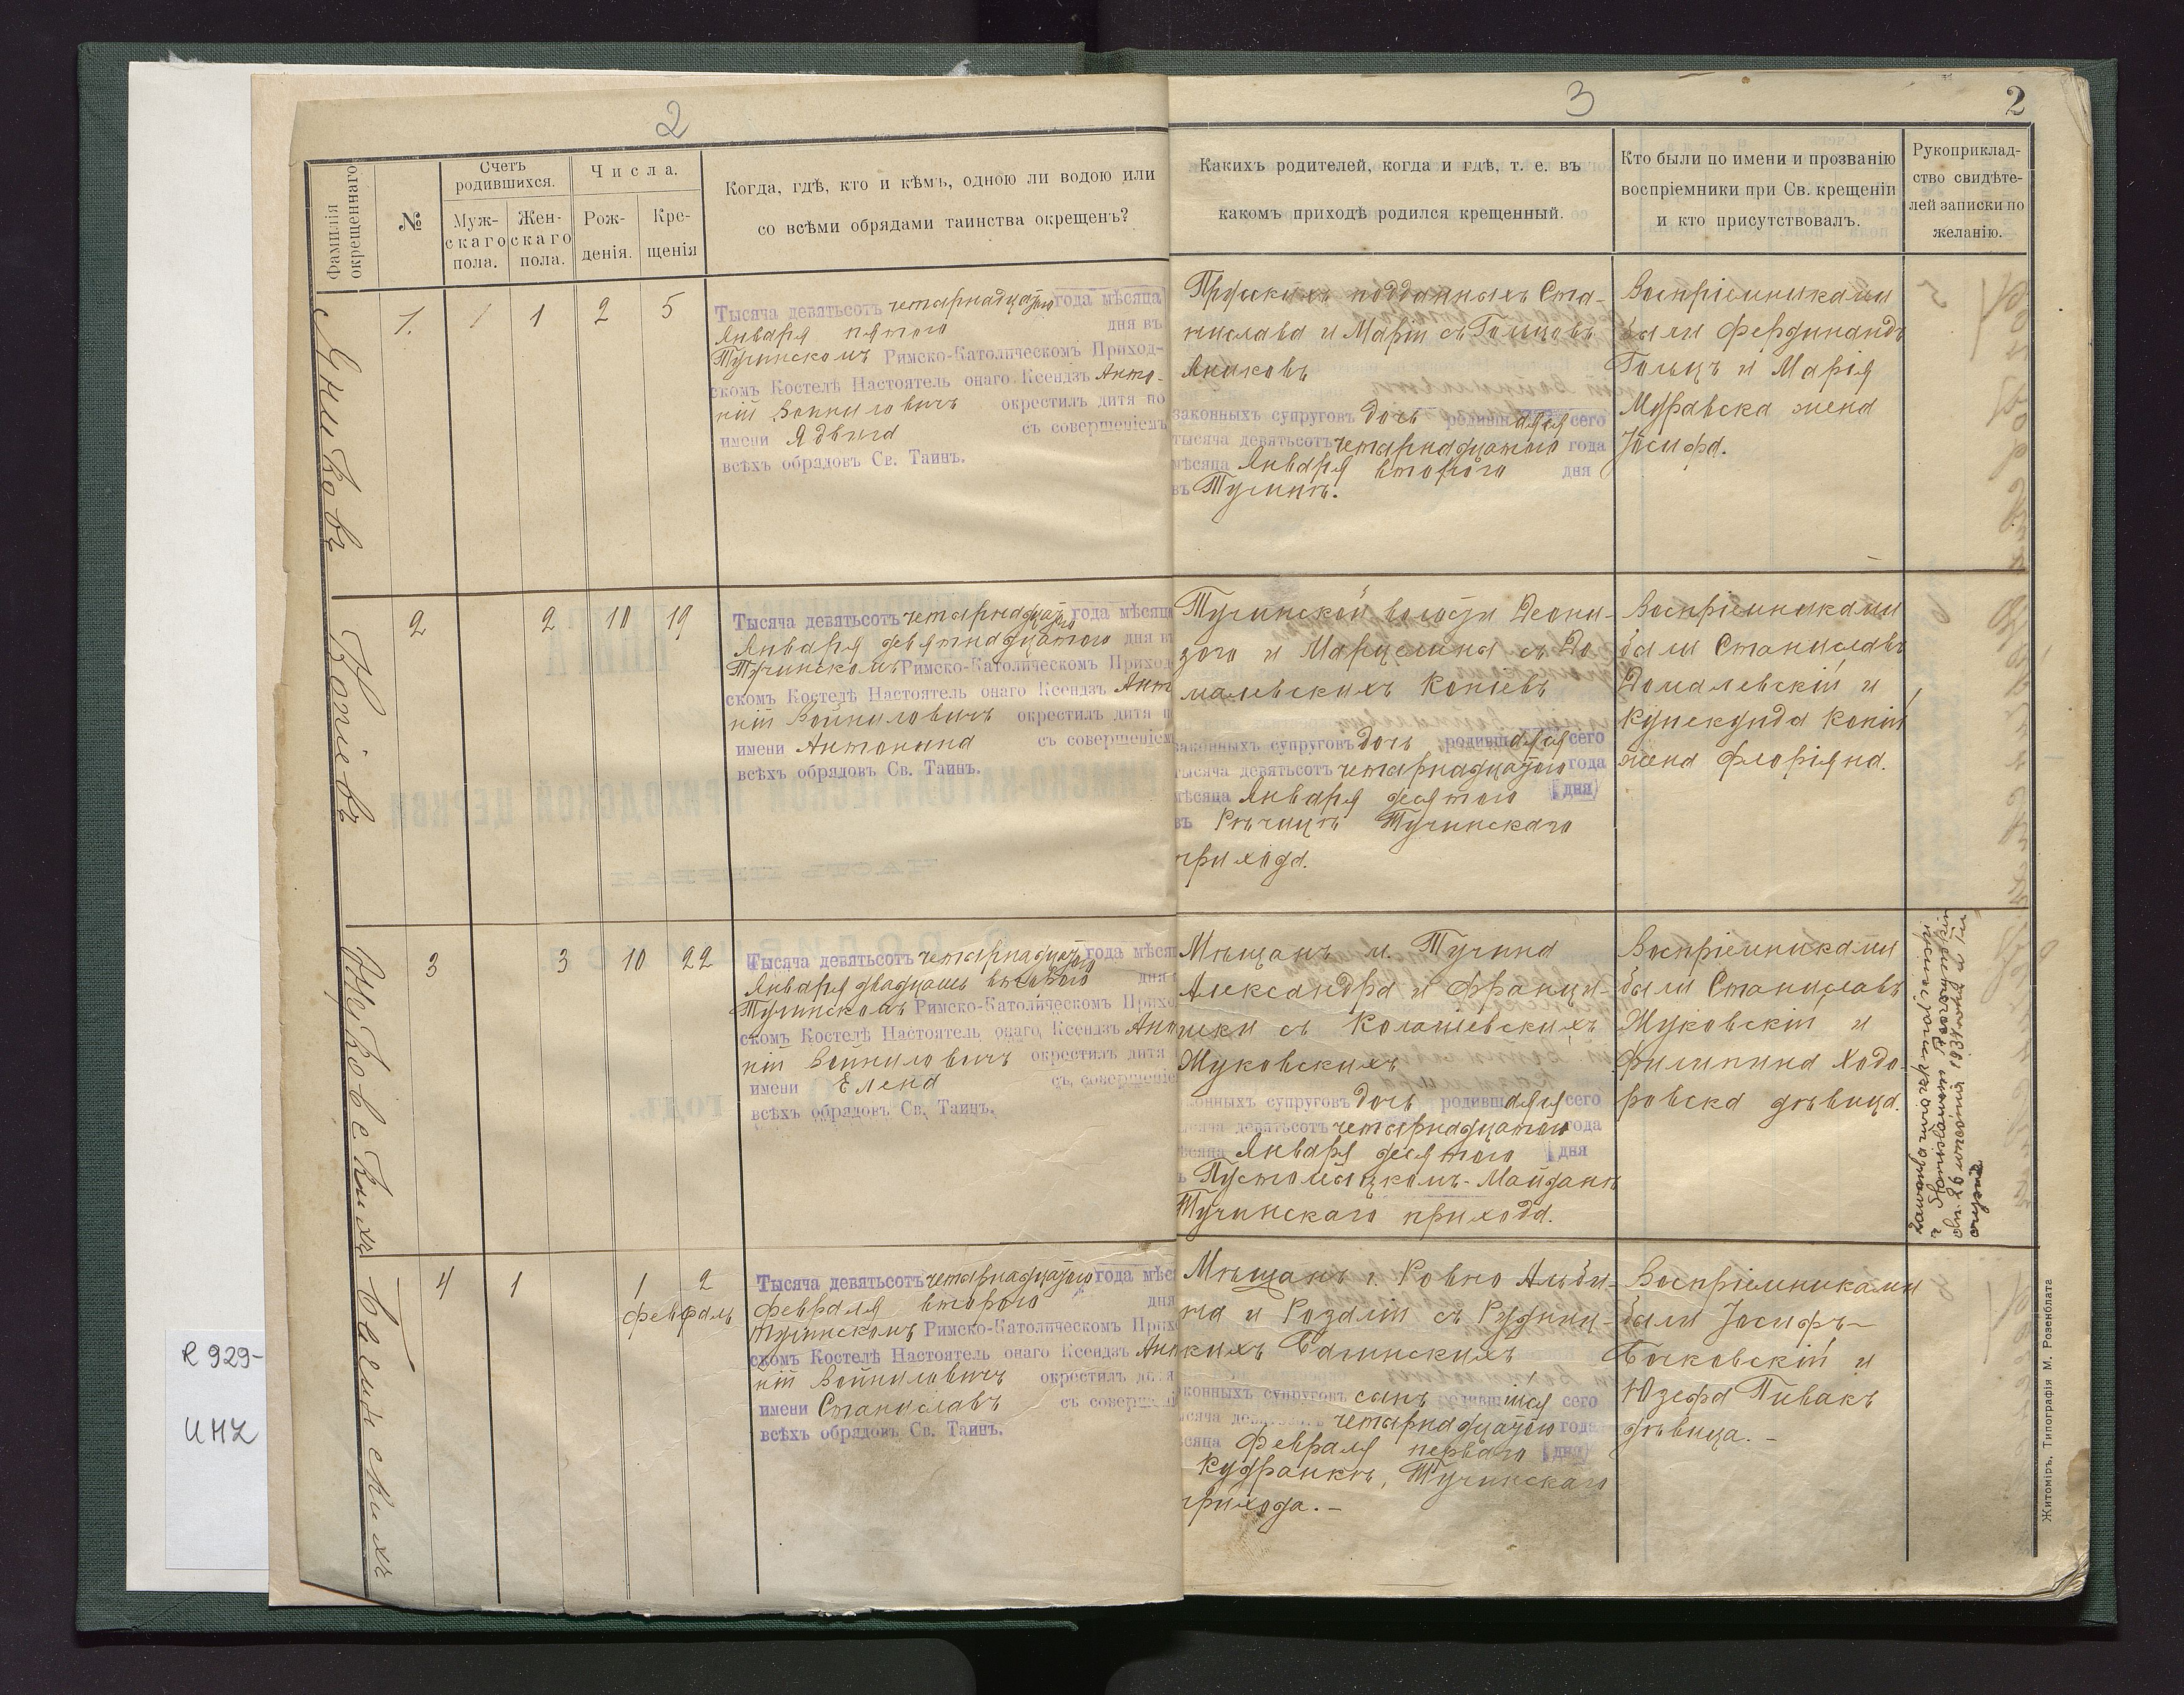 2
3
2
Фамилія
окрещеннаго
№
Счетъ
родившихся.
Муж-
скаго
пола.
Жен-
скаго
пола.
Числа.
Рож-
денія.
Кре-
щенія
Когда, гдѣ, кто и кѣмъ, одною ли водою или
со всѣми обрядами таинства окрещенъ?
Какихъ родителей, когда и гдѣ, т. е. въ
какомъ приходѣ родился крещенный.
Кто были по имени и прозванію
воспріемники при Св. крещеніи
и кто присутствовалъ.
Рукоприклад-
ство свидѣте-
лей записки по
желанію.
Яниковъ
1. 1 2 5
Тысяча девятьсотъ четырнадцатого года мѣсяца
Января пятого дня въ
Тучинскомъ Римско-Католическомъ Приход-
скомъ Костелѣ Настоятель онаго Ксендзъ Анто-
ній Войниловичъ окрестилъ дитя по
имени Ядвига съ совершеніемъ
всѣхъ обрядовъ Св. Таинъ.
Прусскихъ подданныхъ Ста-
нислава и Маріи съ Гольцовъ
Яниковъ
законныхъ супруговъ дочь родившаяся сего
тысяча девятьсотъ четырнадцатого года
мѣсяца Января второго дня
въ Тучинѣ.
Воспріемниками
были Фердинандъ
Гольцъ и Марія
Муравска жена
Іосифа.
Копіевъ
2 2 10 19
Тысяча девятьсотъ четырнадцатого года мѣсяца
Января девятнадцатого дня въ
Тучинскомъ Римско-Католическомъ Приход
скомъ Костелѣ Настоятель онаго Ксендзъ Анто
ній Войниловичъ окрестилъ дитя п
имени Антонина съ совершеніем
всѣхъ обрядовъ Св. Таинъ.
Тучинской волости Деони-
зого и Марцелина съ До-
малевскихъ Копіевъ
законныхъ супруговъ дочь родившаяся сего
тысяча девятьсотъ четырнадцатого года
мѣсяца Января десятого дня
въ Рѣчицѣ Тучинскаго
прихода.
Воспріемниками
были Станиславъ
Домалевскій и
Кунекунда Копій
жена Флоріяна.
Жуковскихъ
3 3 10 22
Тысяча девятьсотъ четырнадцатого года мѣся
Января двадцать второго дня
Тучинскомъ Римско-Католическомъ Прихо
скомъ Костелѣ Настоятель онаго Ксендзъ Анто
ній Войниловичъ окрестилъ дитя
имени Елена съ совершеніе
всѣхъ обрядовъ Св. Таинъ.
Мѣщанъ м. Тучина
Александра и Франци-
шки съ Колашевскихъ
Жуковскихъ
законныхъ супруговъ дочь родившаяся сего
тысяча девятьсотъ четырнадцатого года
мѣсяца Января десятого дня
Пустомытскомъ-Майданѣ
Тучинскаго прихода.
Воспріемниками
были Станиславъ
Жуковскій и
Филипина Ходо-
ровска дѣвица.
z Stanisławem
dn. 26 września 1938 roku w
4 1 1 2
февраль
Тысяча девятьсотъ четырнадцатого года мѣс
февраля второго дня
Тучинскомъ Римско-Католическомъ Прихо
скомъ Костелѣ Настоятель онаго Ксендзъ Анто
ній Войниловичъ окрестилъ дитя
имени Станиславъ съ соверше
всѣхъ обрядовъ Св. Таинъ.
Мѣщанъ г. Ровно Альби-
на и Розалій съ Рудниц-
кихъ Багинскихъ
законныхъ супруговъ сынъ родившійся сего
тысяча девятьсотъ четырнадцатого года
мѣсяца Февраля перваго дня
Кудранкѣ, Тучинскаго
прихода.-
Воспріемниками
были Іосифъ
Бочковскій и
Юзефа Пивакъ
дѣвица.-
Житоміръ, Типографія М. Розенблата
R 929-
UHZ